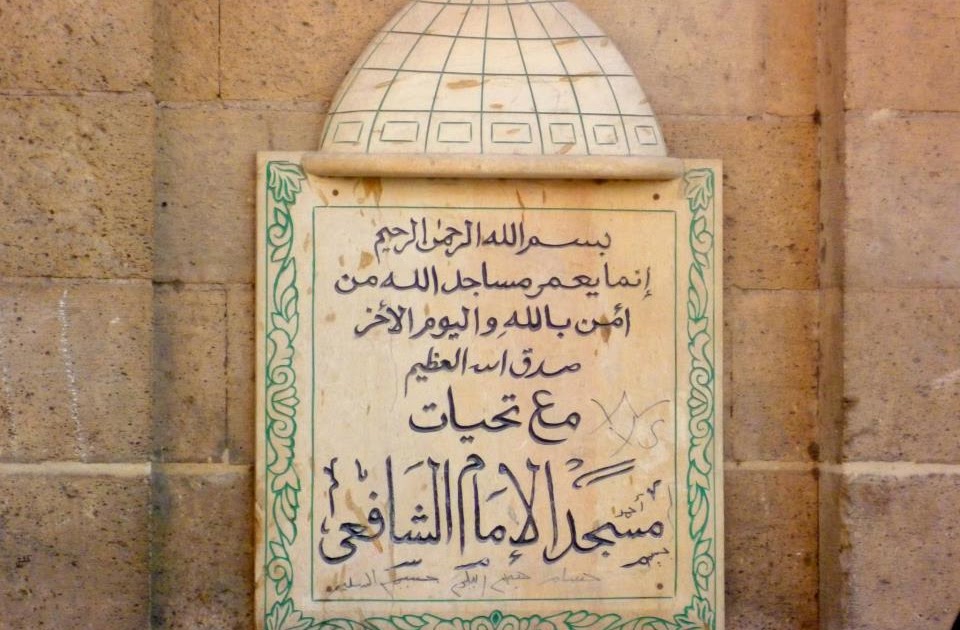 بسم الله الرحمن الرحيم
إنما يعمر مساجد الله من
اٴمن بالله واليوم الأخر
صدق الله العظيم
مع تحيات
مسجد الإمام الشافعى
أحمد